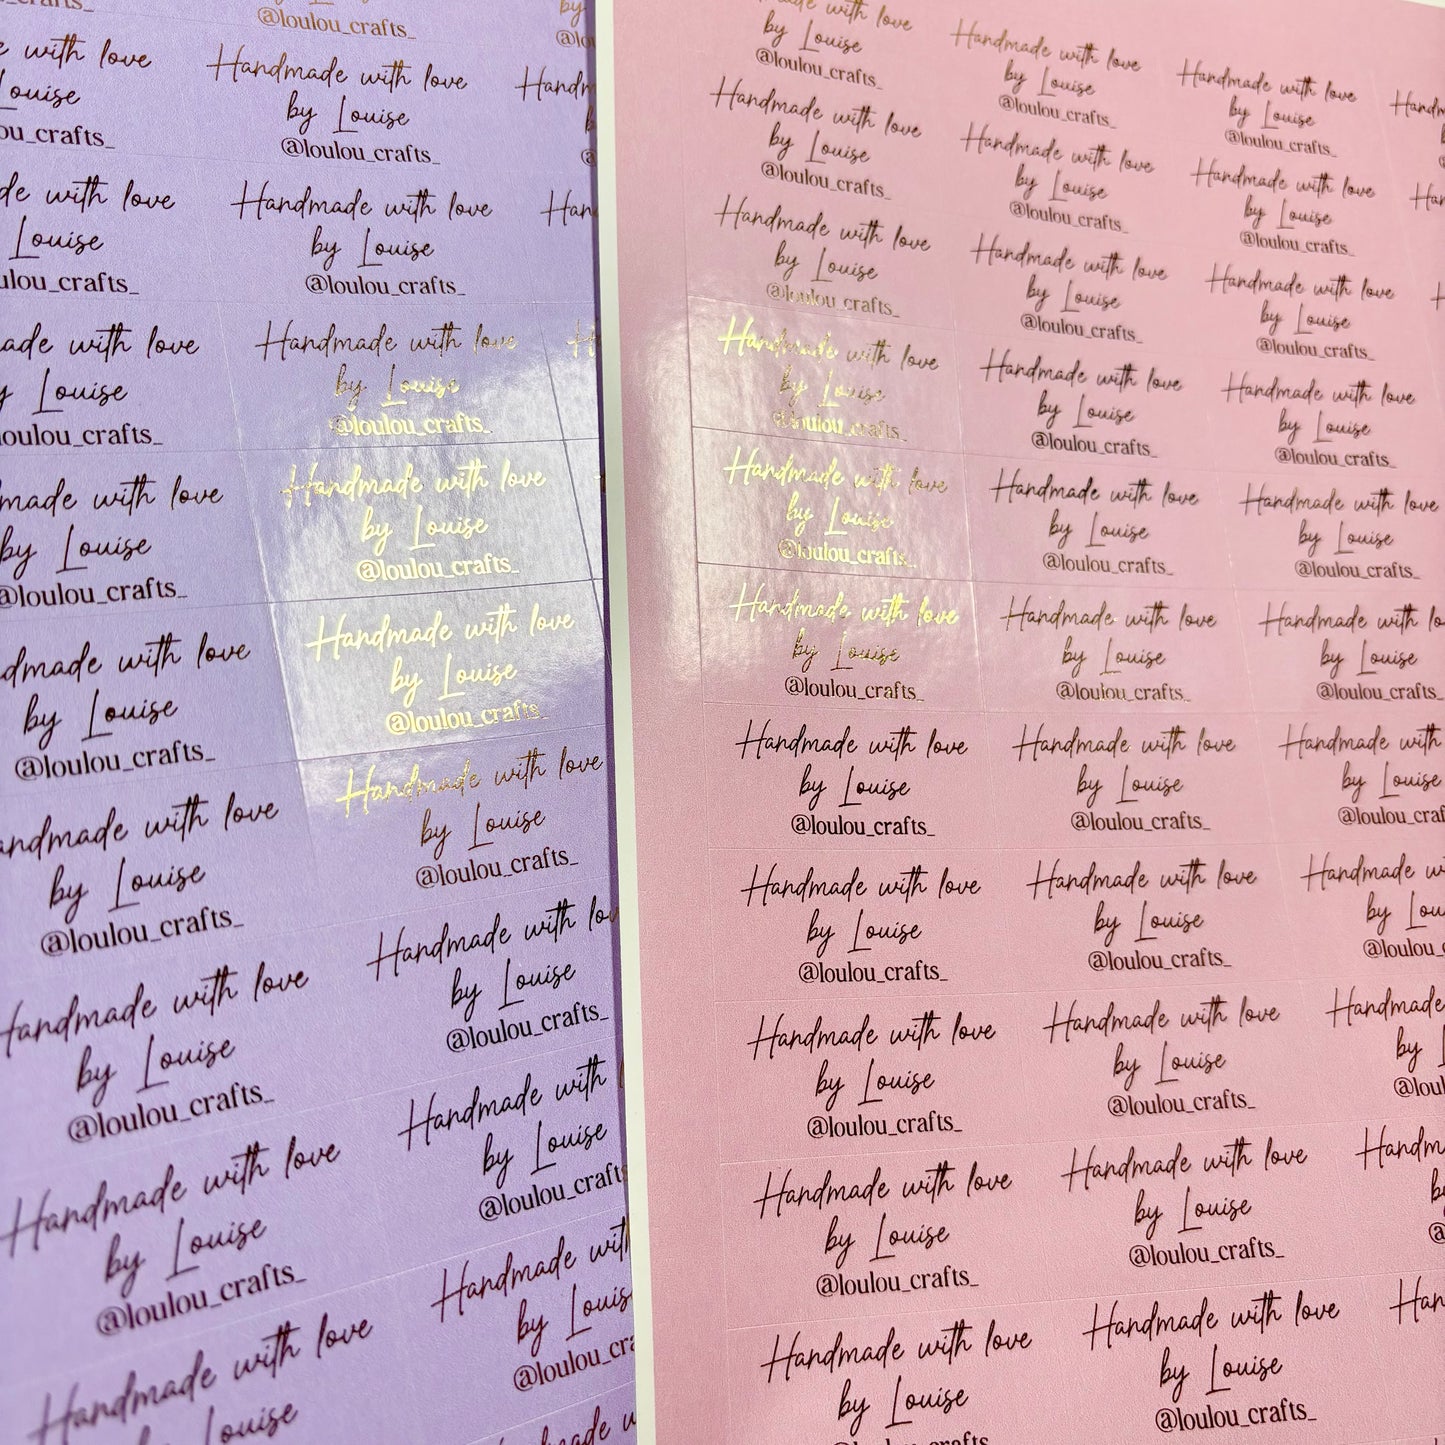 with love
Louise
ou_crafts_
de with love
Louise
ulou_crafts_
ade with love
y Louise
oulou_crafts_
made with love
by Louise
@loulou_crafts_
dmade with love
by Louise
@loulou_crafts_
andmade with love
by Louise
@loulou_crafts_
Handmade with love
by Louise
@loulou_crafts_
Handmade with love
by Louise
@loulou_crafts_
Handmade with love
Louise
@loulou_crafts_
Handmade with love
by Louise
@loulou_crafts_
Handmade with love
by Louise
@loulou_crafts_
Handmade with love
by Louise
@loulou_crafts_
Handmade with love
by Louise
@loulou_crafts_
Handmade with love
by Louise
@loulou_crafts_
Handmade with love
by Louise
@loulou_crafts_
Handmade with lov
by Louise
@loulou_crafts_
Handmade with
by Louise
@loulou_crafts
Handmade with
by Louis
@loulou_cra
Handmade w
by
@lou
Handm
Han
made with love
by Louise
@loulou_crafts_
Handmade with love
by Louise
@loulou_crafts_
Handmade with love
by Louise
@loulou_crafts_
Handmade with love
by Louise
@loulou_crafts_
Handmade with love
by Louise
@loulou_crafts_
Handmade with love
by Louise
@loulou_crafts_
Handmade with love
by Louise
@loulou_crafts_
Handmade with love
by Louise
@loulou_crafts_
Handmade with love
by Louise
@loulou_crafts_
Handmade with love
by Louise
@loulou_crafts_
Handmade with love
by Louise
@loulou_crafts_
Handmade with love
by Louise
@loulou_crafts_
Handmade with love
by Louise
@loulou_crafts_
Handmade with love
by Louise
@loulou_crafts_
Handmade with love
by Louise
@loulou_crafts_
Handmade with love
by Louise
@loulou_crafts_
Handmade with love
by Louise
@loulou_crafts_
Handmade with love
by Louise
@loulou_crafts_
Handmade with love
by Louise
@loulou_crafts_
Handmade with love
by Louise
@loulou_crafts_
Handmade with love
by Louise
@loulou_crafts_
Handmade with love
by Louise
@loulou_crafts_
Handmade with love
by Louise
@loulou_crafts_
Handmade with love
by Louise
@loulou_crafts_
Handmade with love
by Louise
@loulou_crafts_
Handmade with love
by Louise
@loulou_crafts_
Handmade with love
by Louise
@loulou_crafts_
Handmade with lo
by Louise
@loulou_crafts_
Handmade with
by Louise
@loulou_crafts
Handmade w
by Lou
@loulou_c
Handmade
by
@loul
Handm
Han